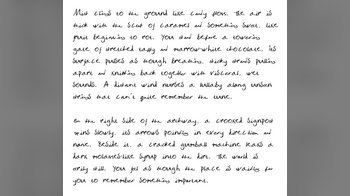 Mist clings to the ground like candy floss. The air is
thick with the scent of caramel and something sweet, like
fruit beginning to rot. You stand before a towering
gate of stretched taffy and marrow-white chocolate. Its
surface pulses as though breathing, sticky strands pulling
apart and knitting back together with visceral, wet
sounds. A distant wind nurses a lullaby along unseen
strings that can't quite remember the tune.
On the right side of the archway, a crooked signpost
spins slowly, its arrows pointing in every direction and
none. Beside it, a cracked gumball machine leaks a
dark molasses-like syrup into the dirt. The world is
eerily still. You feel as though the place is waiting for
you to remember something important.